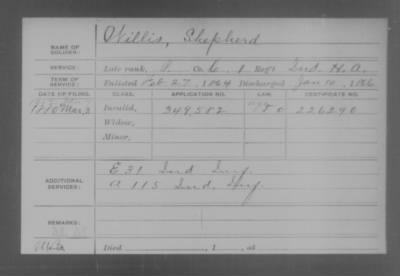 NAME OF SOLDIER: Willis, Shepherd
SERVICE: Late rank, P. Co. C, 1 Regt Ind. H. A.
TERM OF SERVICE: Enlisted Feb 27, 1864 Discharged Jan 10, 1866
DATE OF FILING. CLASS. APPLICATION NO. LAW. CERTIFICATE NO.
Mar, 3 Invalid, 349,582 226290
Widow,
Minor,
ADDITIONAL SERVICES: E 31 Ind Inf.
A 115 Ind. Inf.
REMARKS:
Died , 1 , at